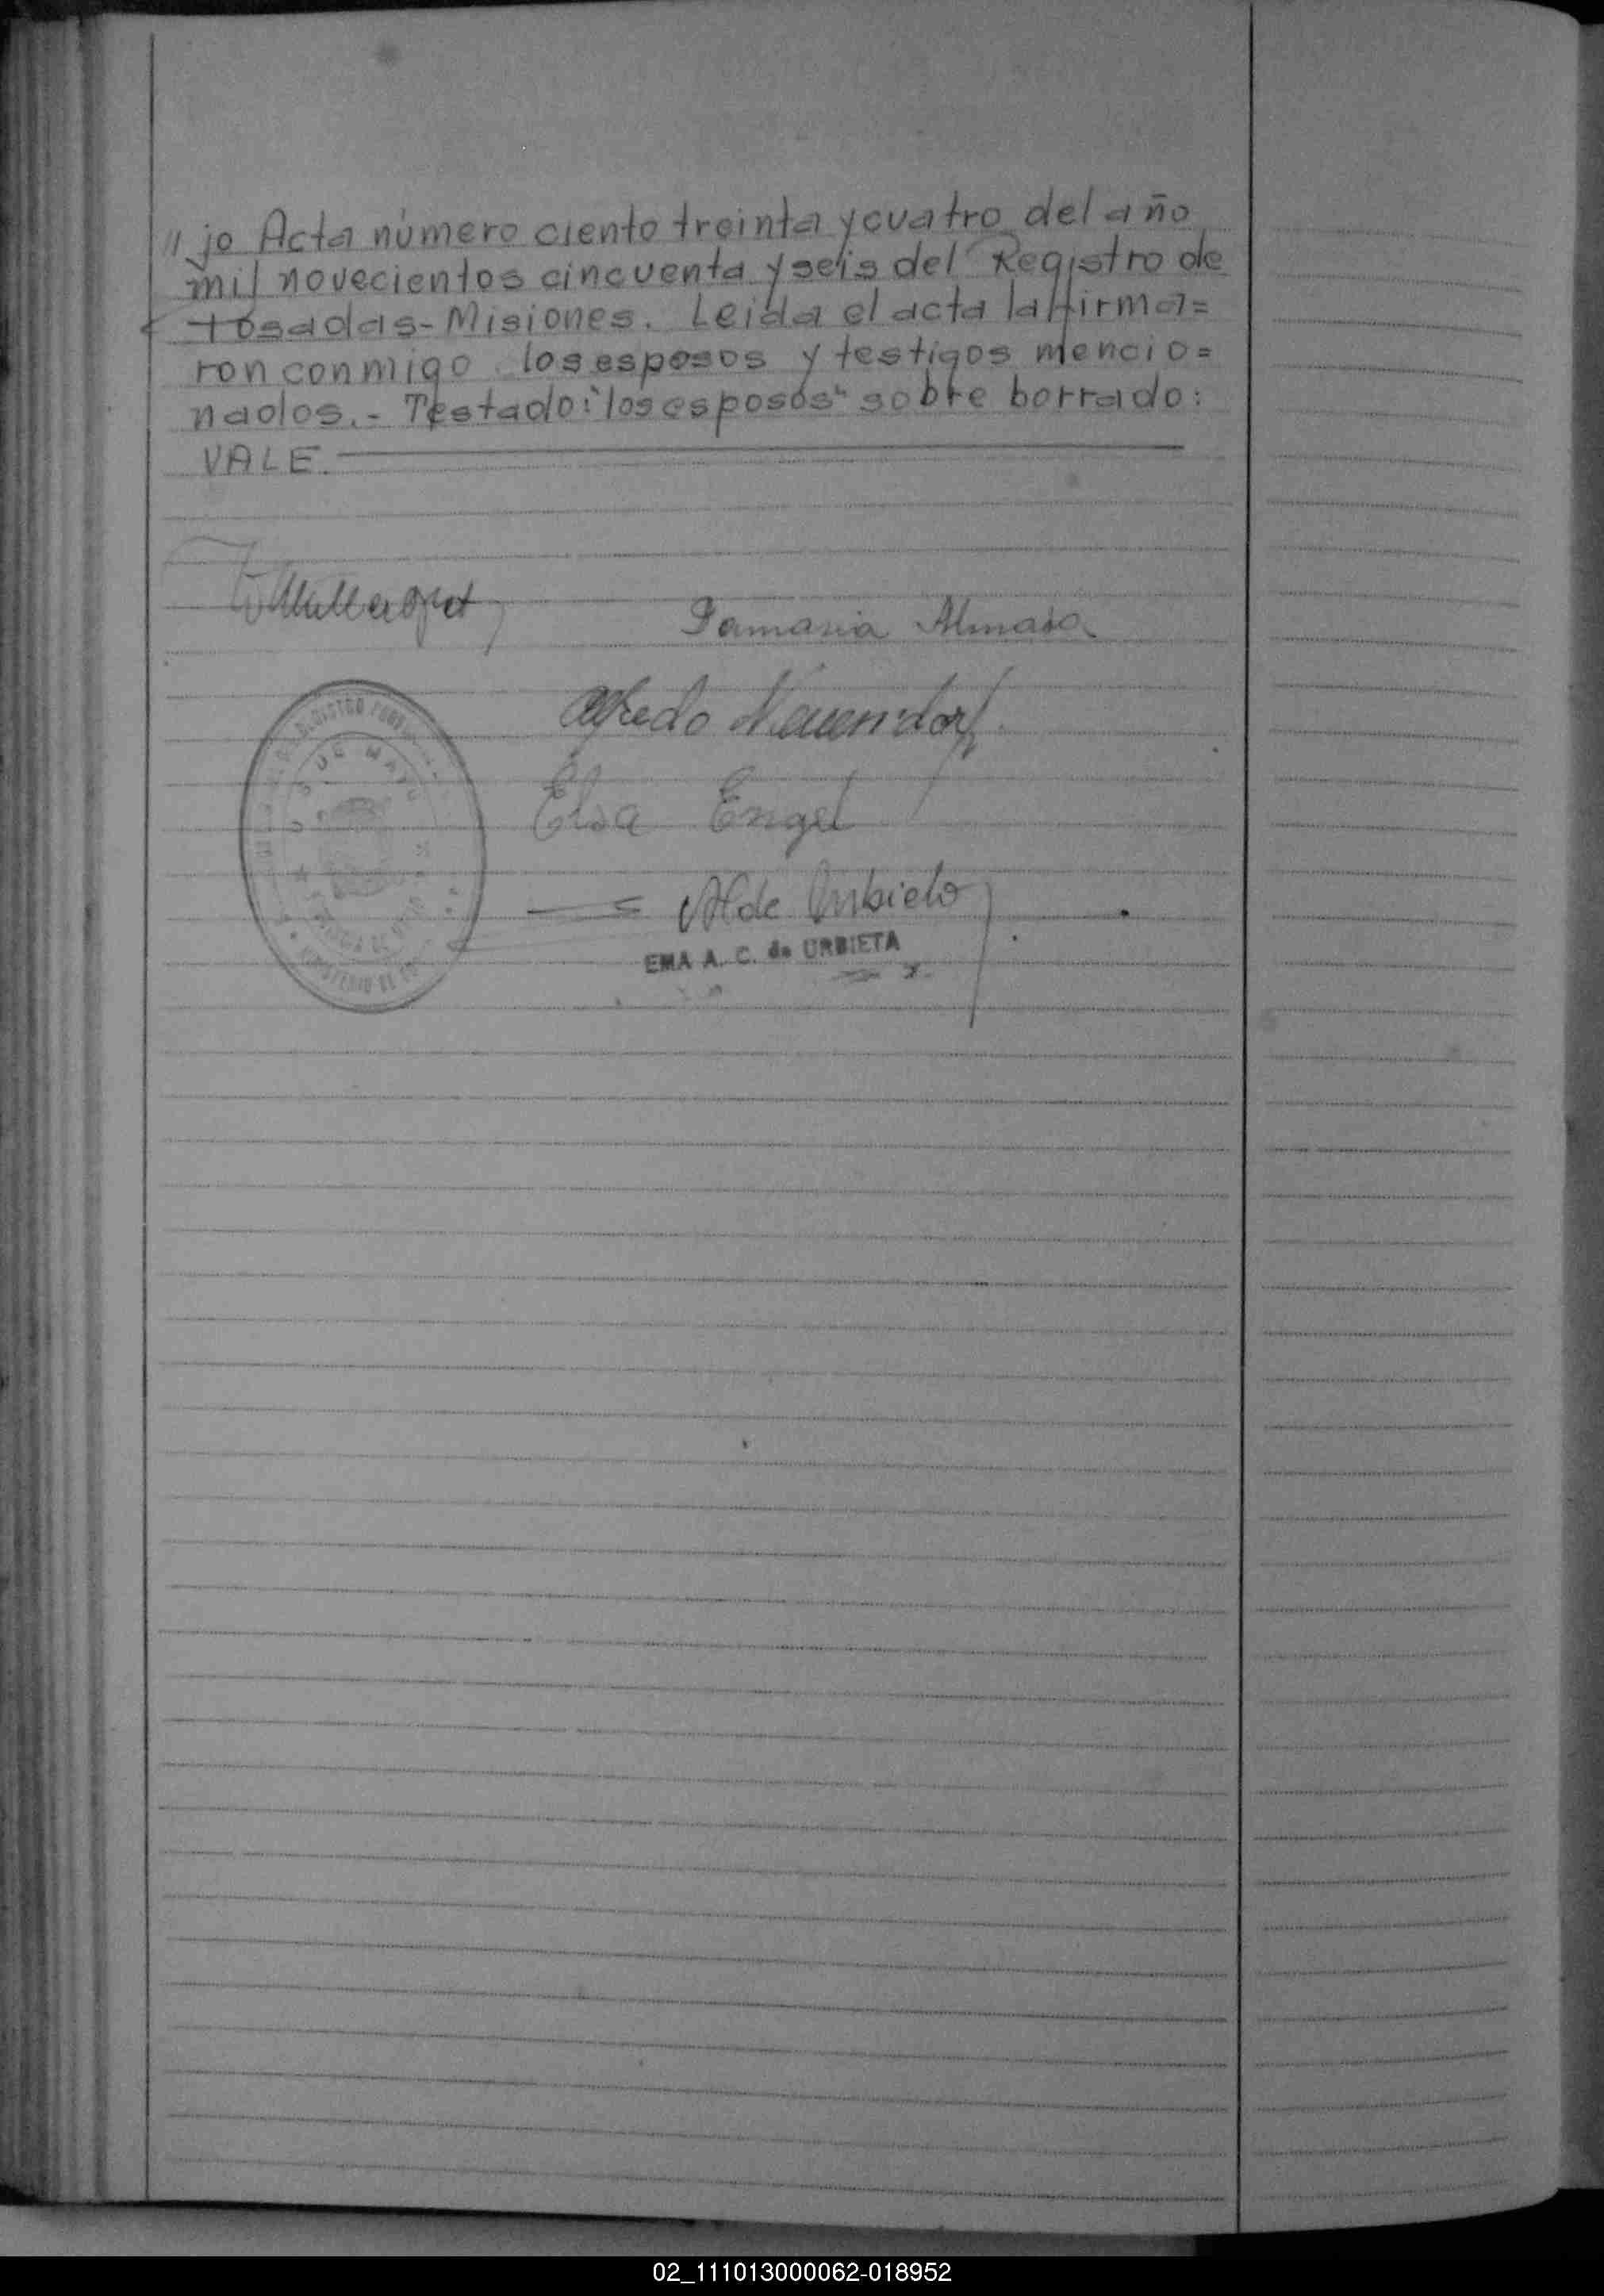 // jo Acta número ciento treinta y cuatro del año
mil novecientos cincuenta y seis del Registro de
Posadas - Misiones. Leida el acta la firma=
ron conmigo los esposos y testigos mencio=
nados. - Testado: "los esposos" sobre borrado:
VALE.
Damasia Almada
Alfredo Neuendorf
Elsa Engel
A de Urbieta
EMA A. C. de URBIETA
02_111013000062-018952